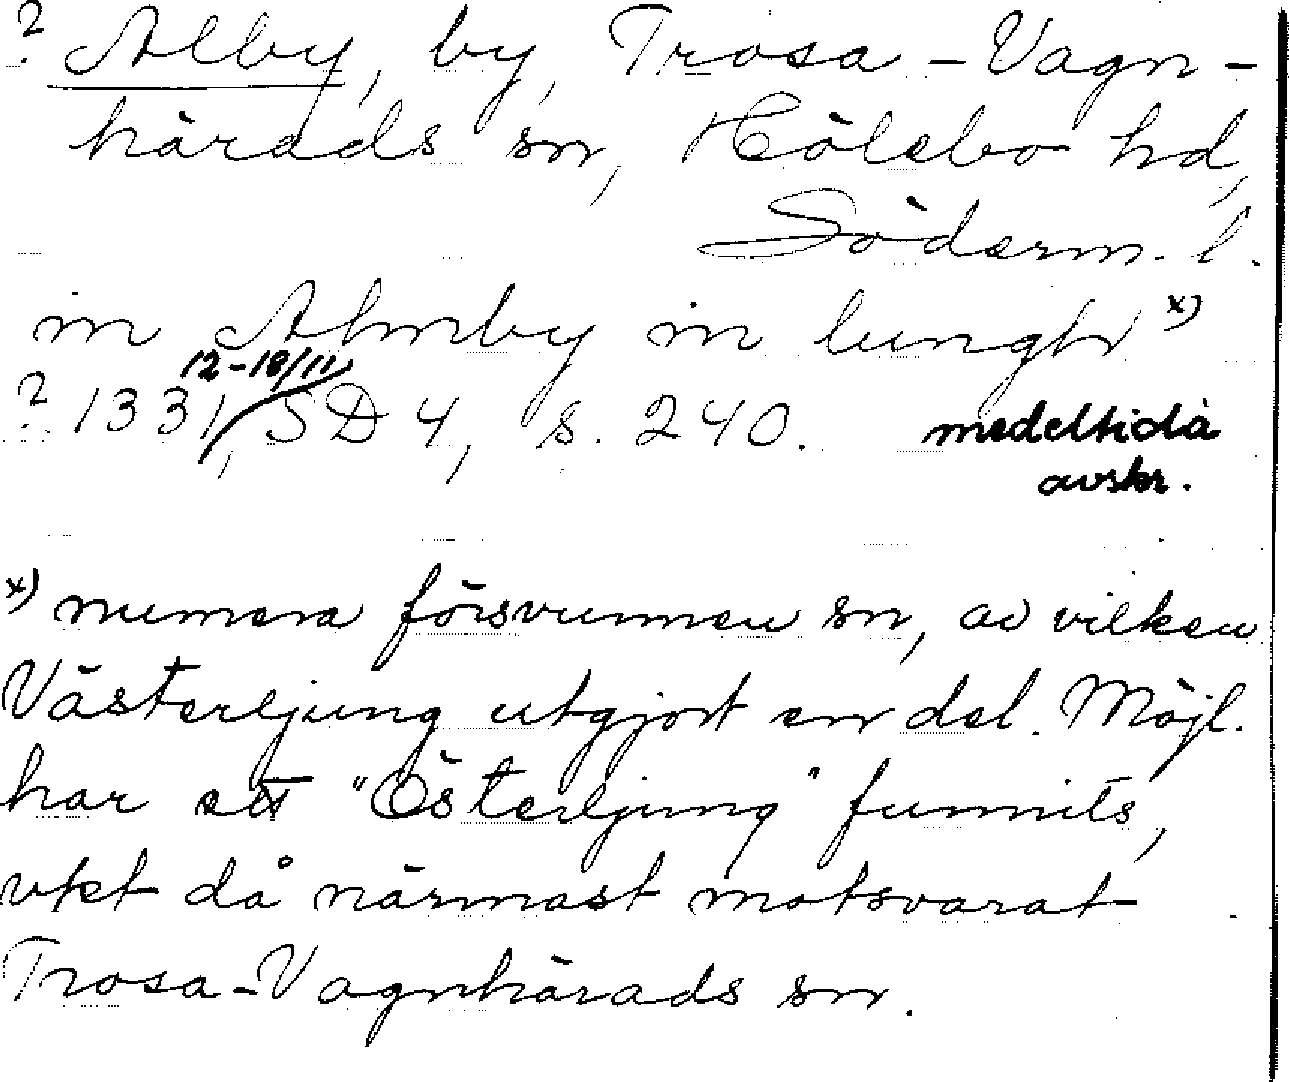 ? Alby, by, Trosa-Vagn-
härads sn, Hölebo hd,
Söderm. l.
in Almby in liungh x)
12-18/11
? 1331, SD 4, s. 240. medeltida
avskr.
x) numera försvunnen sn, av vilken
Västerljung utgjort en del. Möjl.
har ett "Österljung" funnits,
vket då närmast motsvarat
Trosa-Vagnhärads sn.